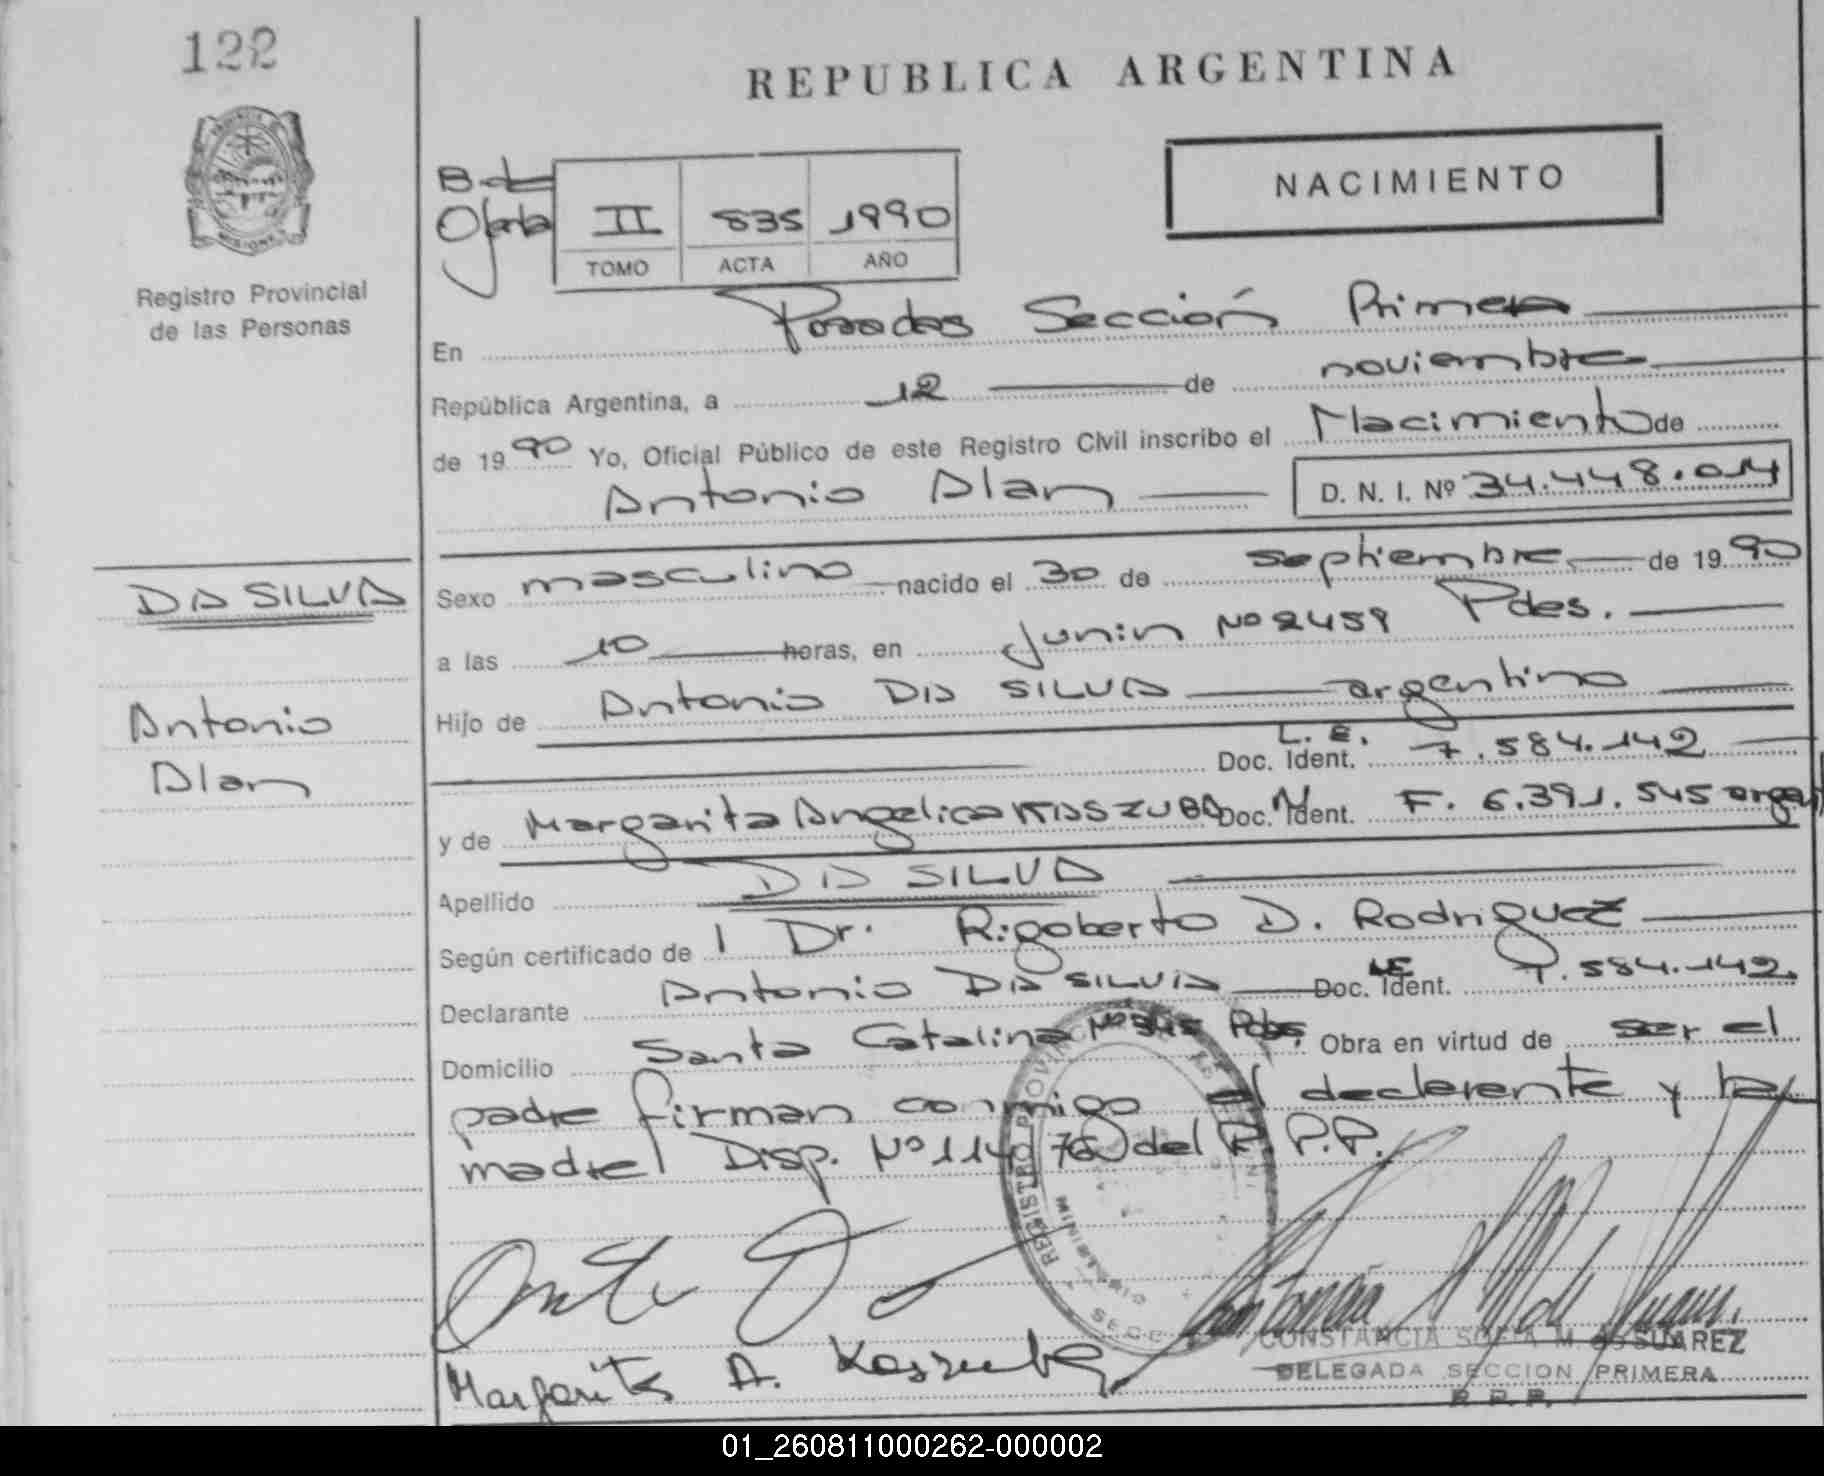 122
REPUBLICA ARGENTINA
NACIMIENTO
II 835 1990
TOMO ACTA AÑO
Registro Provincial
de las Personas
En Posadas Sección Primera
República Argentina, a 12 de noviembre
de 1990 Yo, Oficial Público de este Registro Civil inscribo el Nacimiento de
Antonio Alan D. N. I. Nº 34.448.014
DA SILVA
Antonio
Alan
Sexo masculino nacido el 30 de septiembre de 1990
a las 10 horas, en Junin Nº 2459 Pdas.
Hijo de Antonio DA SILVA argentino
L. E.
Doc. Ident. 7.584.142
y de Margarita Angelica KASZUBA Doc. Ident. F. 6.391.545 argent
Apellido DA SILVA
Según certificado de l Dr. Rigoberto D. Rodriguez
Declarante Antonio DA SILVA LE Doc. Ident. 7.584.142
Domicilio Santa Catalina Nº 345 Pdas. Obra en virtud de ser el
padre firman conmigo el declarente y la
madre Disp. Nº 114 76 del R.P.P.
REGISTRO PROVINCI
SECC
Margarita A. Kaszuba
CONSTANCIA SOFIA M. de SUAREZ
DELEGADA SECCION PRIMERA
R.P.P.
01_260811000262-000002